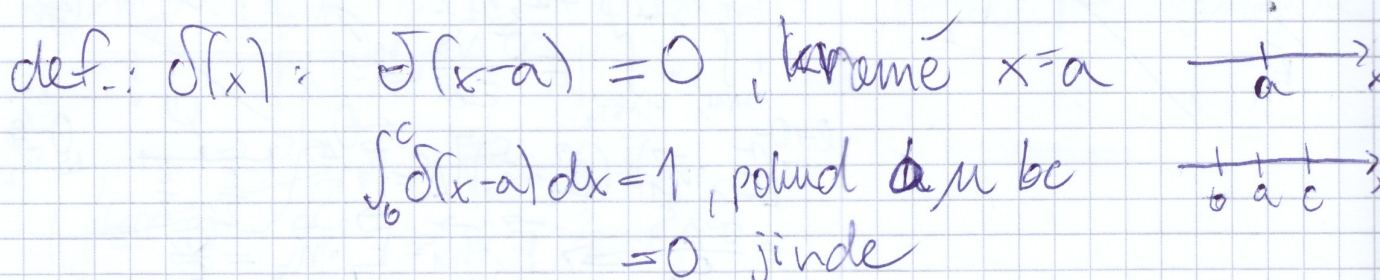 def.: δ(x): δ(x-a) = 0, kromě x=a a x
∫_b^c δ(x-a) dx = 1, pokud a bc b a c
=0 jinde